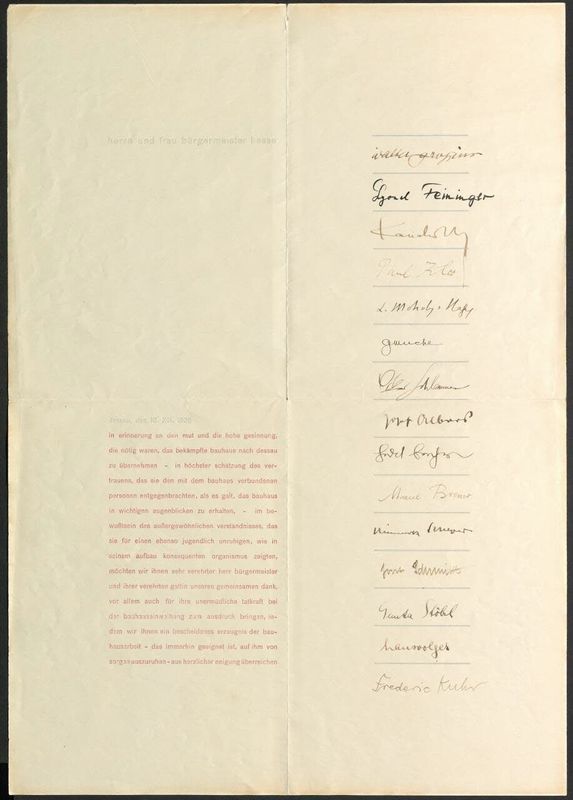 herrn und frau bürgermeister hesse
dessau, den 10. XII. 1926
in erinnerung an den mut und die hohe gesinnung,
die nötig waren, das bekämpfte bauhaus nach dessau
zu übernehmen - in höchster schätzung des ver-
trauens, das sie den mit dem bauhaus verbundenen
personen entgegenbrachten, als es galt, das bauhaus
in wichtigen augenblicken zu erhalten, - im be-
wußtsein des außergewöhnlichen verständnisses, das
sie für einen ebenso jugendlich unruhigen, wie in
seinem aufbau konsequenten organismus zeigten,
möchten wir ihnen sehr verehrter herr bürgermeister
und ihrer verehrten gattin unseren gemeinsamen dank,
vor allem auch für ihre unermüdliche tatkraft bei
der bauhauseinweihung zum ausdruck bringen, in-
dem wir ihnen ein bescheidenes erzeugnis der bau-
hausarbeit - das immerhin geeignet ist, auf ihm von
sorgen auszuruhen - aus herzlicher neigung überreichen
walter gropius
Lyonel Feininger
Kandinsky
Paul Klee
L. Moholy-Nagy
gmuche
Oskar Schlemmer
josef albers
Marcel Breuer
hinnerk scheper
joost Schmidt
Gunta Stölzl
hannes
Frederic Kuhr